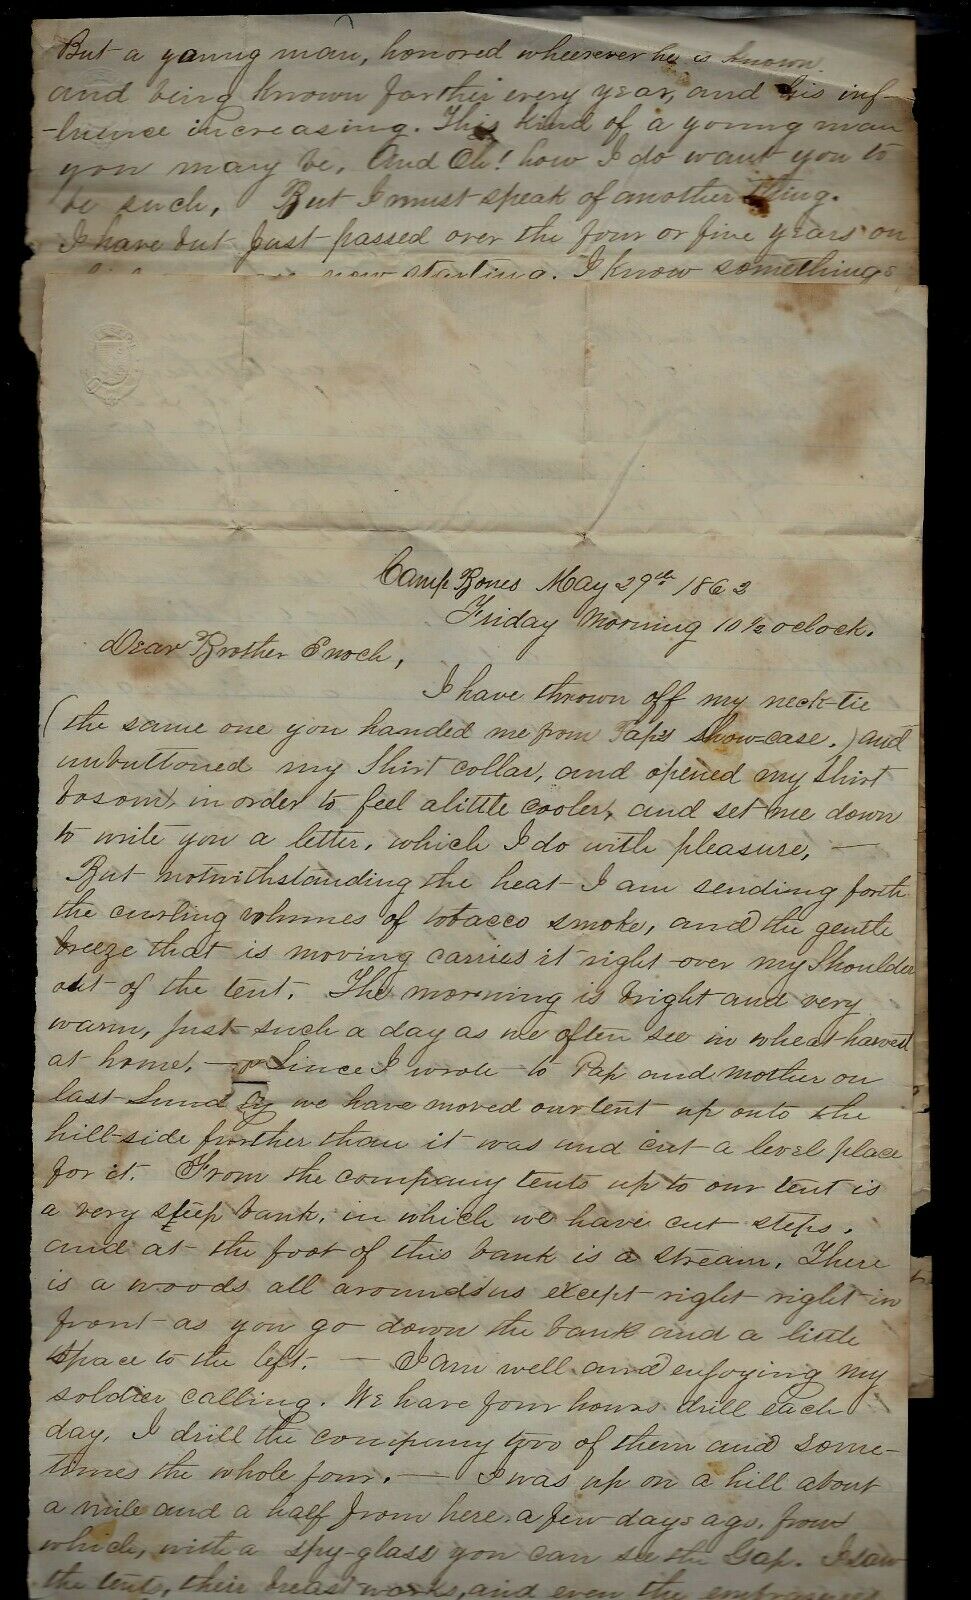 But a young man, honored wheresever he is known.
and being known farther every year, and his inf-
-luence increasing. This kind of a young man
you may be. And Oh! how I do want you to
be such, But I must speak of another thing.
I have but just passed over the four or five years on
now starting. I know something
Camp Bones May 29th 1862
Friday Morning 10 ½ oclock.
Dear Brother Enoch,
I have thrown off my neck-tie
(the same one you handed me from Paps show-case.) and
unbuttoned my Shirt collar, and opened my Shirt
bosom, in order to feel alittle cooler, and set me down
to write you a letter, which I do with pleasure, —
But notwithstanding the heat I am sending forth
the curling volumes of tobacco smoke, and the gentle
breeze that is moving carries it right over my Shoulder
out of the tent. The morning is bright and very
warm, just such a day as we often see in wheat harvest
at home. — Since I wrote to Pap and Mother on
last Sunday we have moved our tent up onto the
hill-side further than it was and cut a level place
for it. From the company tents up to our tent is
a very steep bank, in which we have cut steps.
and at the foot of this bank is a stream. There
is a woods all around us except right right in
front as you go down the bank and a little
Space to the left. — I am well and enjoying my
soldier calling. We have four hours drill each
day, I drill the company two of them and some-
times the whole four. — I was up on a hill about
a mile and a half from here a few days ago, from
which, with a spy-glass you can see the Gap. I saw
the tents, their breast works, and even the